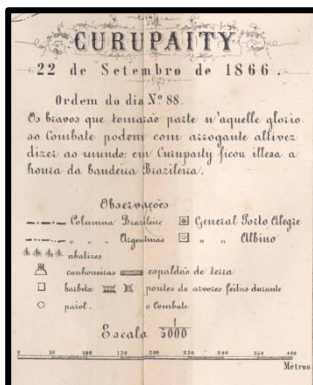 CURUPAITY
22 de Setembro de 1866.
Ordem do dia Nº 88.
Os bravos que tomarão parte n'aquelle glorio
so Combate podem com arrogante altivez
dizer ao mundo: em Curuparty ficou illesa a
honra da bandeira Brazileira.
Observações
Columna Brazileire General Porto Alegre
" " Argentinas " " Albino
abatizes
canhoneiras espaldão de terra
barbeta pontes de arvores feitas durante
paiol. o Combate
Escala 1/5000
50 100 150 200 250 300 350 400
Metros